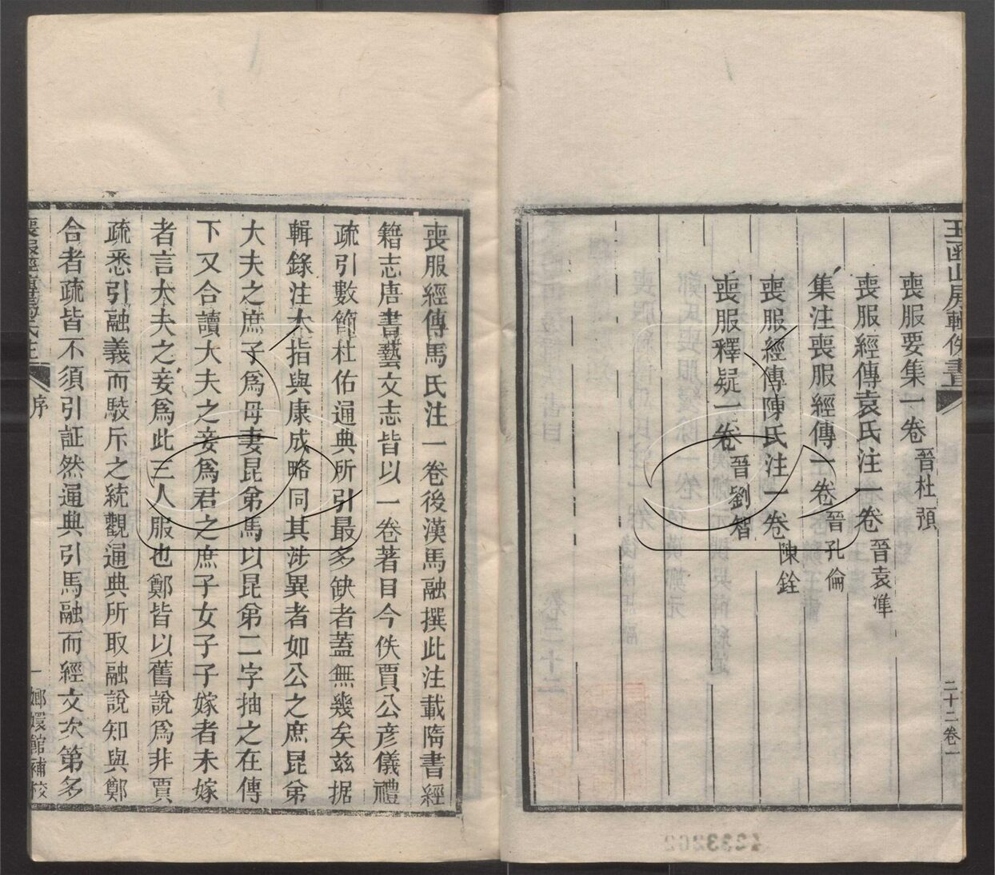 玉函山房輯佚書
二十二卷一
喪服要集一卷 晉杜預
喪服經傳袁氏注一卷 晉袁準
集注喪服經傳一卷 晉孔倫
喪服經傳陳氏注一卷 陳銓
喪服釋疑一卷 晉劉智
喪服經傳馬氏注一卷後漢馬融撰此注載隋書經
籍志唐書藝文志皆以一卷著目今佚賈公彥儀禮
疏引數節杜佑通典所引最多缺者蓋無幾矣兹据
輯錄注大指與康成略同其涉異者如公之庶昆弟
大夫之庶子爲母妻昆弟馬以昆弟二字抽之在傳
下又合讀大夫之妾爲君之庶子女子子嫁者未嫁
者言大夫之妾爲此三人服也鄭皆以舊說爲非賈
疏悉引融義而駮斥之統觀通典所取融說知與鄭
合者疏皆不須引証然通典引馬融而經文次第多
喪服經傳馬氏注
序
一
嫏嬛館補校